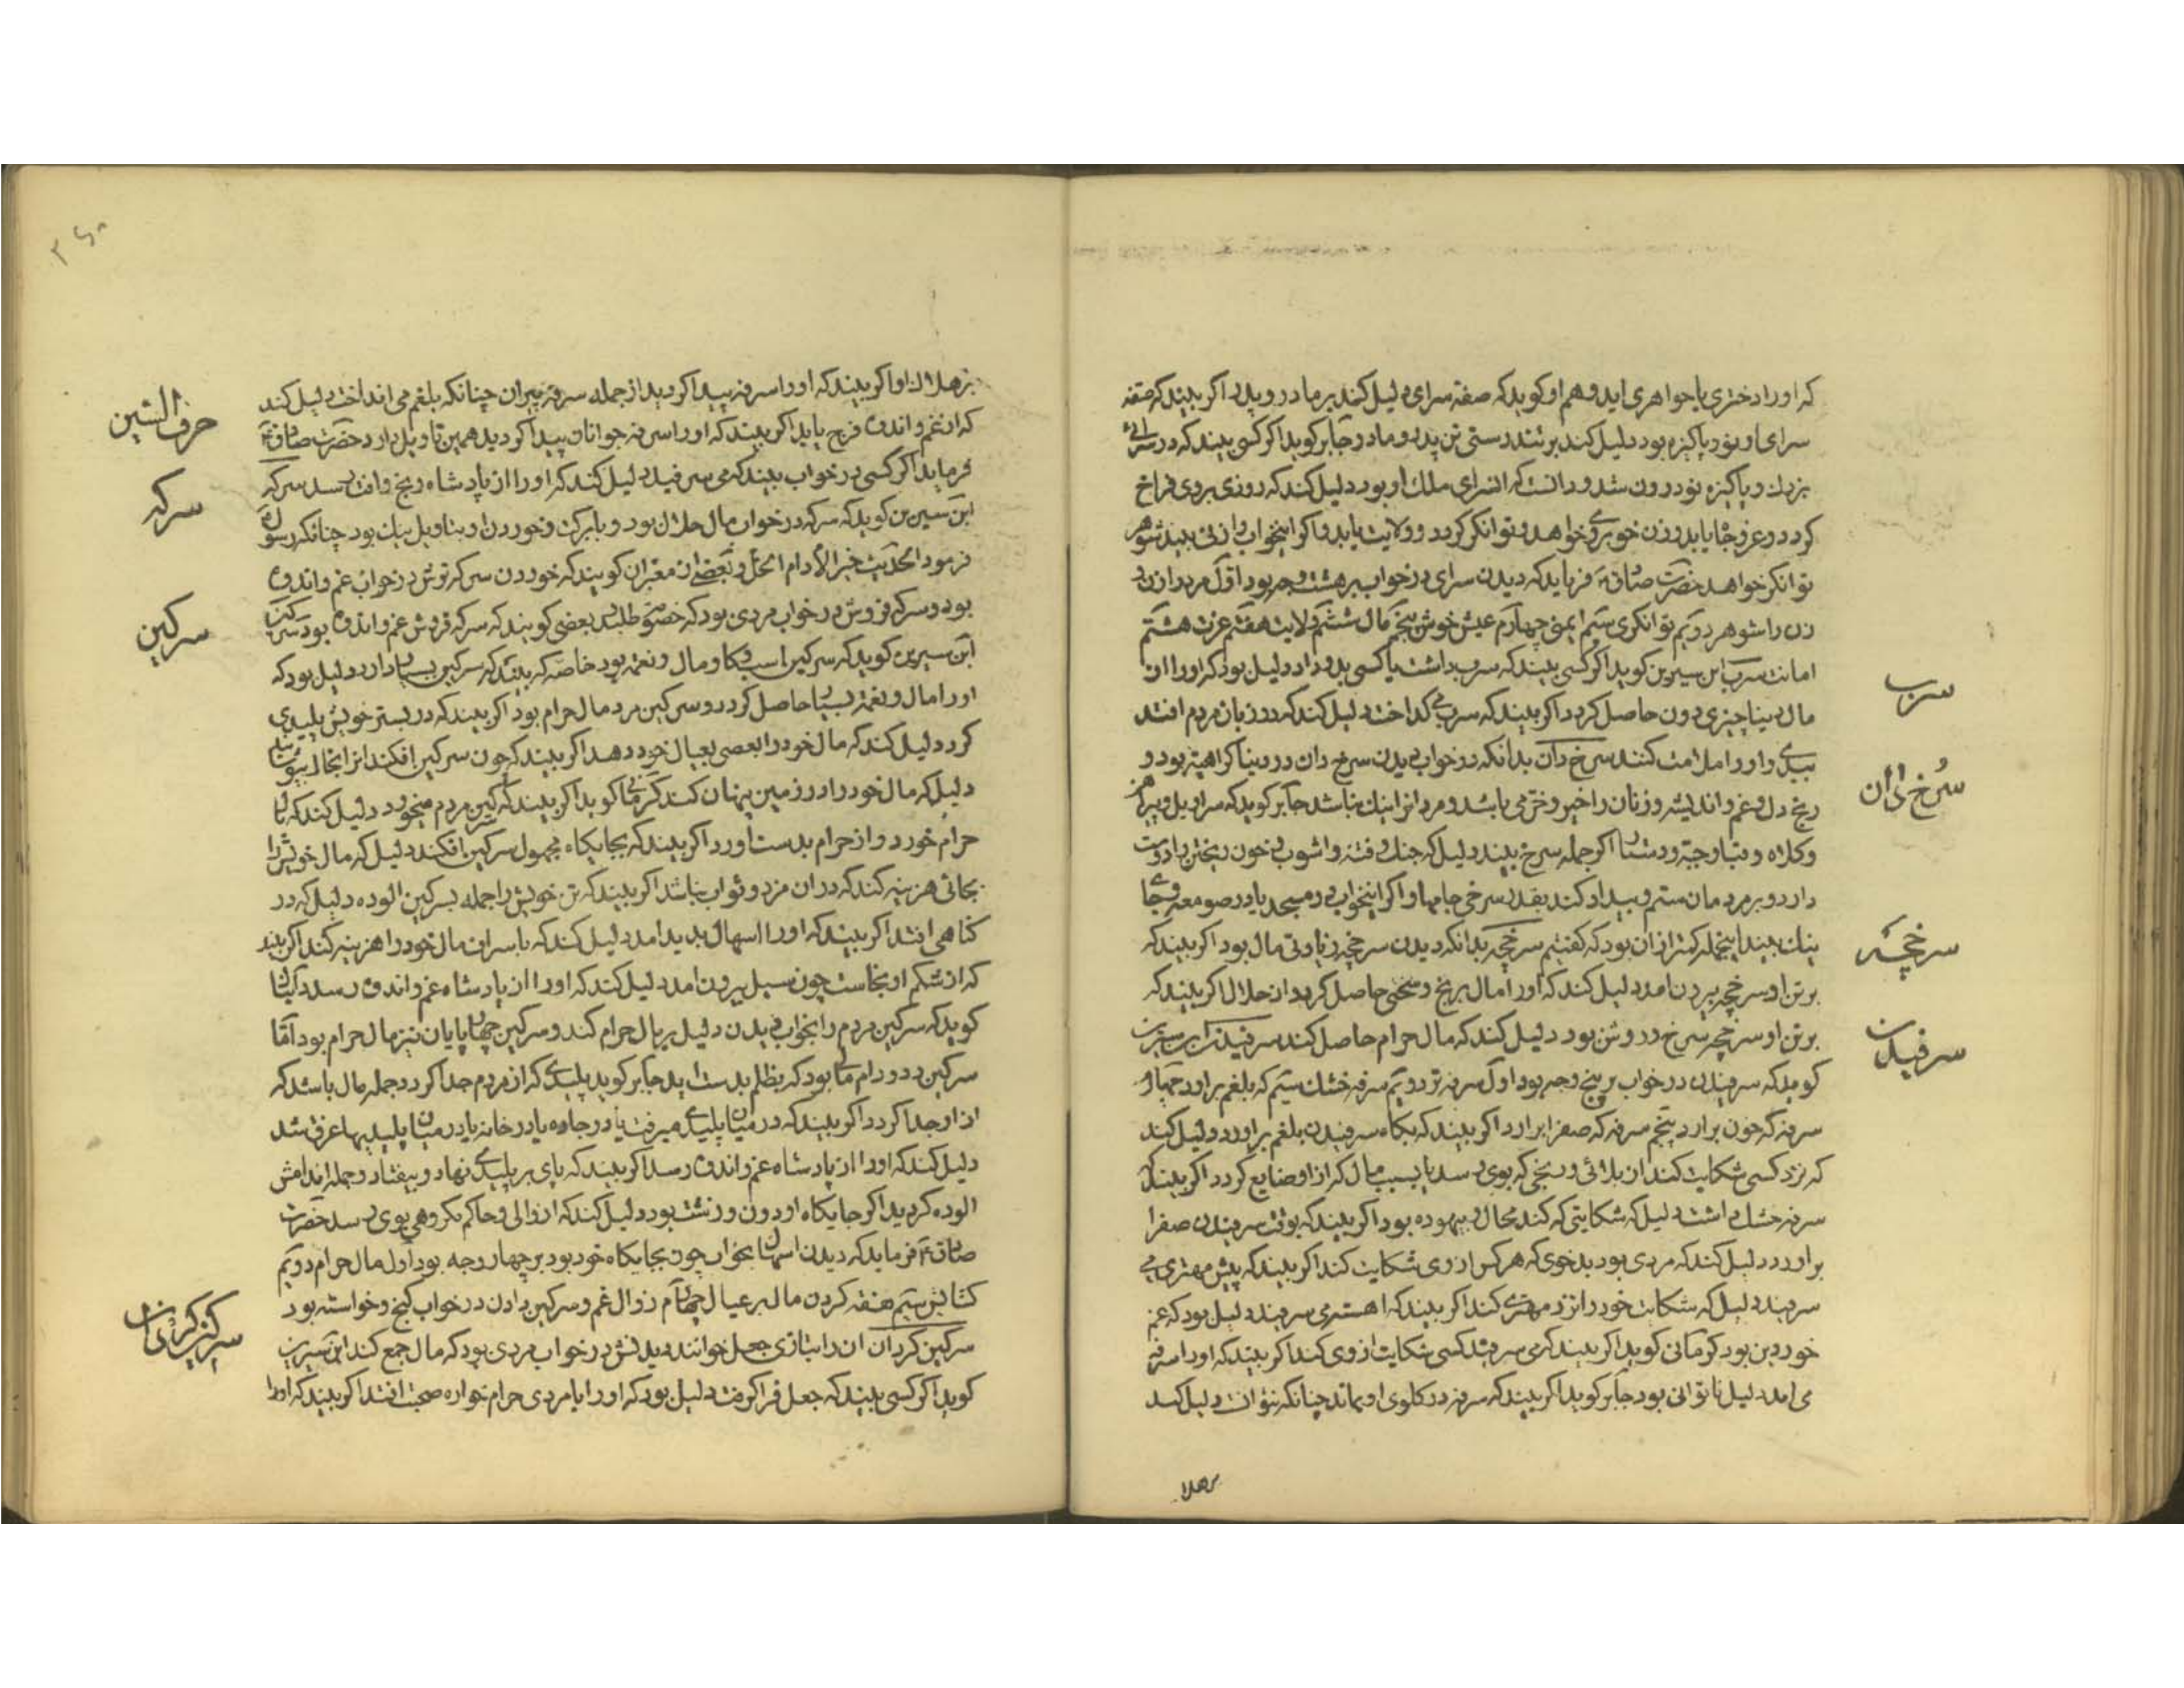 که او را دختری یا خواهری اید و هم او کوید که صفه سرای دلیل کند بر مادر و پدر اکر بیند که صفه
سرای او نو و پاکیزه بود دلیل کند بر تندرستی تن پدر و مادر و جابر کوید اکر کسی بیند که در سرائی
بزرك و پاکیزه نو درون شد و دانست که ان سرای ملك او بود دلیل کند که روزی بر وی فراخ
کردد و عز و جاه یابد و زن خوبروی خواهد و توانکر کردد و ولایت یابد و اکر اینخواب را زنی بیند شوهر
توانکر خواهد حضرت صادق فرماید که دیدن سرای در خواب بر هشت وجه بود اول مرد را زن و
زن را شوهر دویم توانکری سیم ایمنی چهارم عیش خوش پنجم مال ششم ولایت هفتم عزت هشتم
امانت سرب ابن سیرین کوید اکر کسی بیند که سرب داشت یا کسی بدو داد دلیل بود که او را از
مال دنیا چیزی دون حاصل کردد اکر بیند که سرب می کداخت دلیل کند که در زبان مردم افتد
ببدی و او را ملامت کنند سرخ دان بدانکه در خواب دیدن سرخ دان در دنیا کراهیت بود و
رنج دل و غم و اندیشه و زنان را خیر و خرمی باشد و مردانرا نیك نباشد جابر کوید که سراویل و پیراهن
و کلاه و قبا و جبه و دستار اکر جمله سرخ بیند دلیل که جنك و فتنه و اشوب و خون ریختن را دوست
دارد و بر مردمان ستم و بیداد کند بقدر سرخی جامها و اکر اینخواب در مسجد یا در صومعه و جای
نیك بیند اینجمله کمتر از ان بود که کفتیم سرخچه بدانکه دیدن سرخچه زیادتی مال بود اکر بیند که
بر تن او سرخچه بیرون امد دلیل کند که او را مال برنج و سختی حاصل کردد از حلال اکر بیند که
بر تن او سرخچه سرخ و روشن بود دلیل کند که مال حرام حاصل کند سرفیدن ابن سیرین
کوید که سرفیدن در خواب بر پنج وجه بود اول سرفه تر دویم سرفه خشك سیم که بلغم براورد چهارم
سرفه که خون برارد پنجم سرفه که صفرا برارد اکر بیند که بکاه سرفیدن بلغم براورد دلیل کند
که نزد کسی شکایت کند از بلائی و رنجی که بوی رسد یا بسبب مال که از او ضایع کردد اکر بیند که
سرفه خشك داشت دلیل که شکایتی که کند محال و بیهوده بود اکر بیند که بوقت سرفیدن صفرا
براورد دلیل کند که مردی بود بدخوی که هر کس از وی شکایت کند اکر بیند که پیش مهتری می
سرفید دلیل که شکایت خود را نزد مهتری کند اکر بیند که اهسته می سرفید دلیل بود که غم
خوردن بود کرمانی کوید اکر بیند که می سرفید کسی شکایت از وی کند اکر بیند که او را سرفه
می امد دلیل ناتوانی بود جابر کوید اکر بیند که سرفه در کلوی او بماند چنانکه نتوانست دلیل کند
بر هلا
سرب
سرخ دان
سرخچه
سرفیدن
بر هلاك او اکر بیند که او را سرفه پیدا کردید از جمله سرفه پیران چنانکه بلغم می انداخت دلیل کند
که از غم و اندوه فرج یابد اکر بیند که او را سرفه جوانان پیدا کردید همین تاویل دارد حضرت صادق
فرماید اکر کسی در خواب بیند که می سرفید دلیل کند که او را از پادشاه رنج و افت رسد سرکه
ابن سیرین کوید که سرکه در خواب مال حلال بود و با برکت و خوردن او بتاویل نیك بود چنانکه رسول
فرمود الحدیث خیر الادام الخل و بعضی از معبران کویند که خوردن سرکه ترش در خواب غم و اندوه
بود و سرکه فروش در خواب مردی بود که خصومت طلبد بعضی کویند که سرکه فروش غم و اندوه بود سرکین
ابن سیرین کوید که سرکین اسب و کاو مال و نعمت بود خاصه که بیند که سرکین بسیار دارد دلیل بود که
او را مال و نعمت بسیار حاصل کردد و سرکین مرد مال حرام بود اکر بیند که در بستر خویش پلیدی
کرد دلیل کند که مال خود را بعضی بعیال خود دهد اکر بیند که چون سرکین افکند انرا بخاك بپوشانید
دلیل که مال خود را در زمین پنهان کند کرمانی کوید اکر بیند که سرکین مردم میخورد دلیل کند که مال
حرام خورد و از حرام بدست اورد اکر بیند که بجایکاه مجهول سرکین افکند دلیل که مال خویش را
بجائی هزینه کند که در ان مزد و ثواب نباشد اکر بیند که تن خویش را جمله بسرکین الوده دلیل که در
کناهی افتد اکر بیند که او را اسهال پدید امد دلیل کند که باسراف مال خود را هزینه کند اکر بیند
که از شکم او نجاست چون سیل بیرون امد دلیل کند که او را از پادشاه غم و اندوه رسد
کوید که سرکین مردم را بخواب دیدن دلیل بر مال حرام کند و سرکین چهارپایان نیز مال حرام بود اما
سرکین دد و دام مالی بود که بظلم بدست اید جابر کوید پلیدی که از مردم جدا کردد جمله مال باشد که
از او جدا کردد اکر بیند که در میان پلیدی میرفت یا در چاه یا در خانه یا در میان پلیدیها غرق شد
دلیل کند که او را از پادشاه غم و اندوه رسد اکر بیند که پای بر پلیدی نهاد و بیفتاد و جمله اندامش
الوده کردید اکر جایکاه او دون و زشت بود دلیل کند که از والی و حاکم مکروهی بوی رسد حضرت
صادق فرماید که دیدن اسهال بخواب چون بجایکاه خود بود بر چهار وجه بود اول مال حرام دویم
کشایش سیم هنفقه کردن مال بر عیال چهارم زوال غم و سرکین دادن در خواب کنج و خواسته بود
سرکین کردان ان را بتازی جعل خوانند دیدنش در خواب مردی بود که مال جمع کند ابن سیرین
کوید اکر کسی بیند که جعل فرا کرفت دلیل بود که او را با مردی حرام خواره صحبت افتد اکر بیند که او را
حرف السین
سرکه
سرکین
سرکین کردان